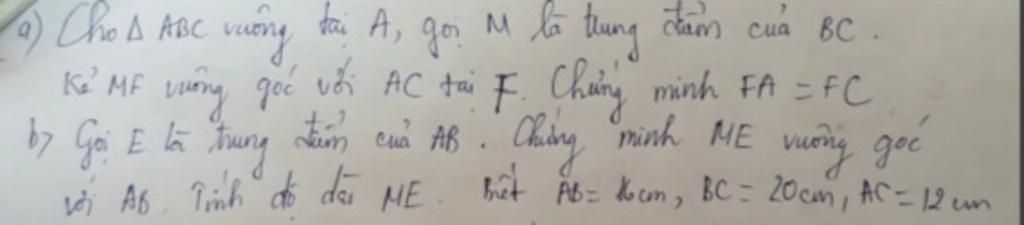 a) Cho Δ ABC vuông tại A, gọi M là trung điểm của BC.
Kẻ MF vuông góc với AC tại F. Chứng minh FA = FC
b) Gọi E là trung điểm của AB. Chứng minh ME vuông góc
với AB. Tính độ dài ME. Biết AB = 16cm, BC = 20cm, AC = 12cm